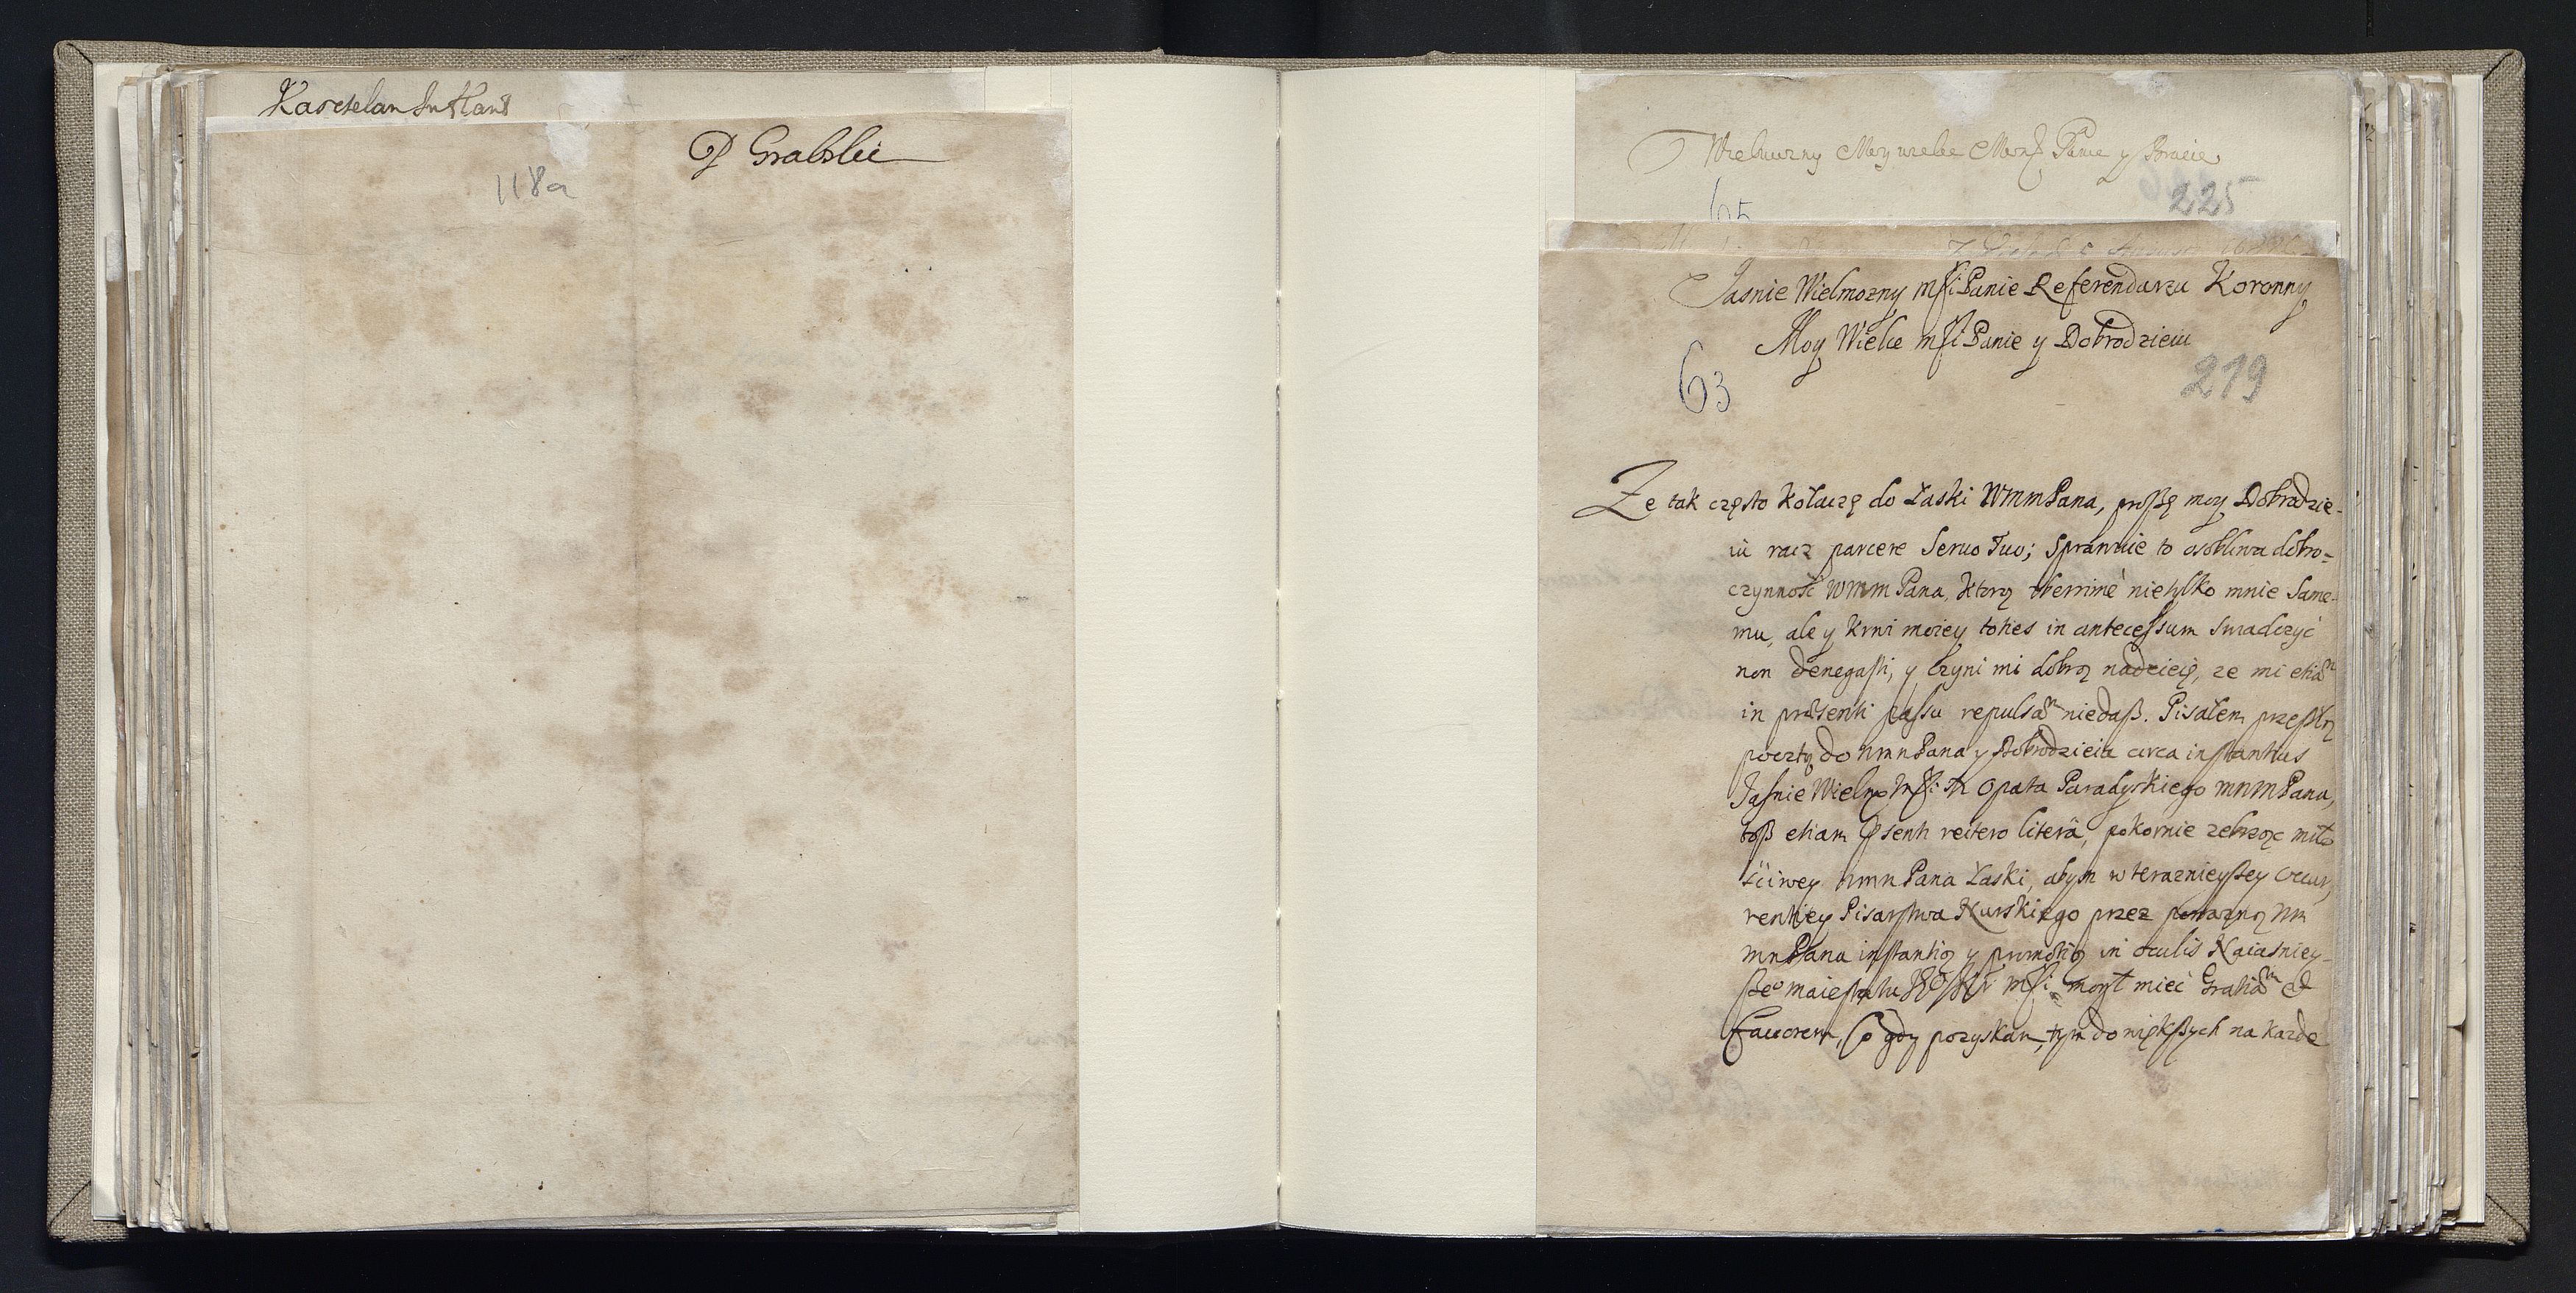 Kasztelan Inflant
P Grabski
118a
Wielmozny Moy wielce Mosci Panie y Bracie
225
65
Jasnie Wielmozny Msci Panie Referendarzu Koronny
Moy Wielce Msci Panie y Dobrodzieiu
63
219
Ze tak często kołaczę do Łaski WmmPana, proszę moy Dobrodzie-
iu racz parcere Seruo Tuo; Sprawuie to osobliwa dobro-
czynność WmmPana, ktorą uberrimè nie tylko mnie Same-
mu, ale y krwi moiey toties in antecessum swiadczyć
non denegasti, y czyni mi dobrą nadzieię, ze mi etiam
in præsenti passu repulsam niedasz. Pisałem przeszłą
pocztą do WmnPana y Dobrodzieia circa instantias
Jasnie Wielmo Msci Opata Paradyskiego mnmPana,
tosz etiam præsenti reitero literâ, pokornie zebrząc miło
sciwey WmnPana Łaski, abym w teraznieyszey occur,
rentiey Pisarstwa Nurskiego przez powazną Wm
mnPana instantią y promotią in oculis Naiasniey-
szeo maiestatu Msci mogł mieć Gratiam &
Fauorem, Co gdy pozyskam, tym do większych na kazde